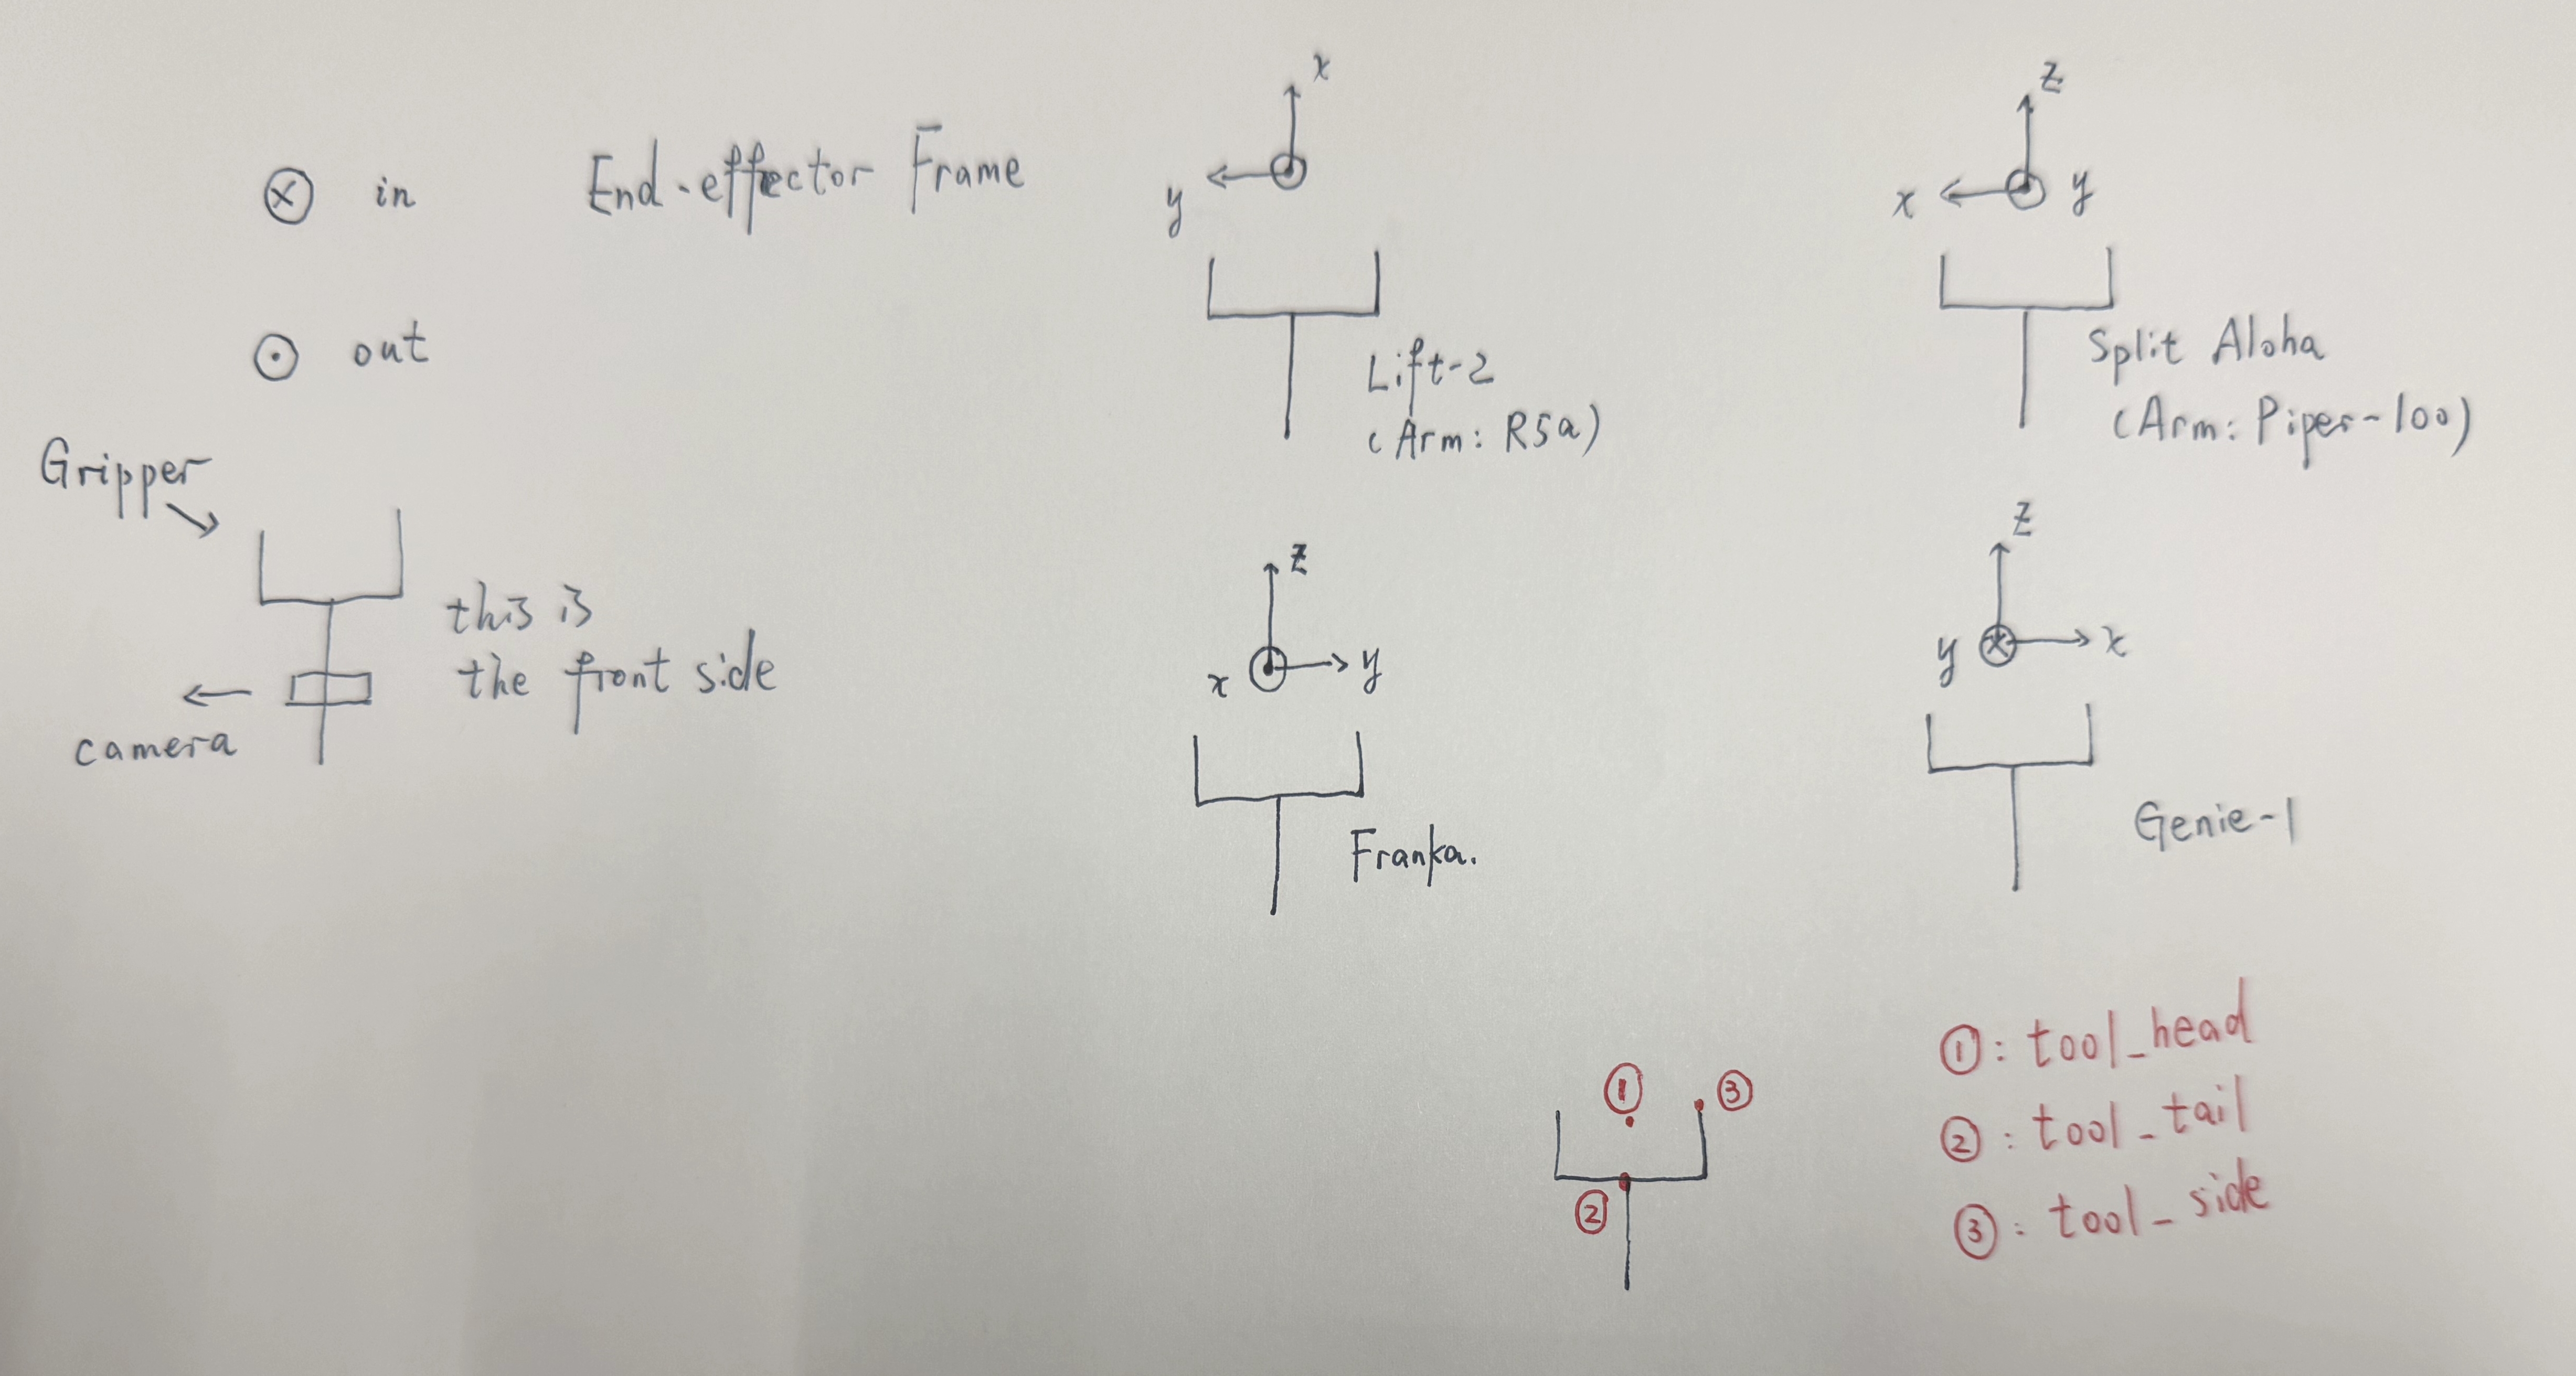 ⊗ in
End-effector Frame
⊙ out
Gripper
this is
the front side
camera
x
y
Lift-2
(Arm: R5a)
z
x
y
Split Aloha
(Arm: Piper-100)
z
x
y
Franka.
z
y
x
Genie-1
①
③
②
①: tool_head
②: tool_tail
③: tool_side